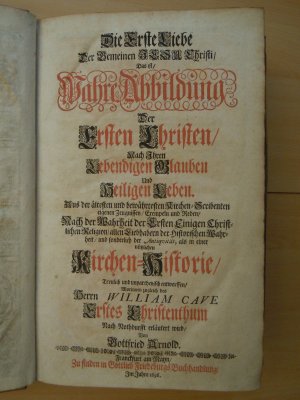 Die Erste Liebe
Der Gemeinen JESU Christi/
Das ist/
Wahre Abbildung
Der
Ersten Christen/
Nach Ihren
Lebendigen Glauben
Und
Heiligen Leben.
Aus der ältesten und bewährtesten Kirchen-Scribenten
eigenen Zeugnissen/ Exempeln und Reden/
Nach der Wahrheit der Ersten Einigen Christ-
lichen Religion/ allen Liebhabern der Historischen Wahr-
heit/ und sonderlich der Antiquität, als in einer
nützlichen
Kirchen-Historie/
Treulich und unpartheyisch entworffen/
Worinnen zugleich des
Herrn WILLIAM CAVE
Erstes Christenthum
Nach Nothdurfft erläutert wird/
Von
Gottfried Arnold.
Franckfurt am Mayn/
Zu finden in Gottlieb Friedeburgs Buchhandlung/
Im Jahre 1696.